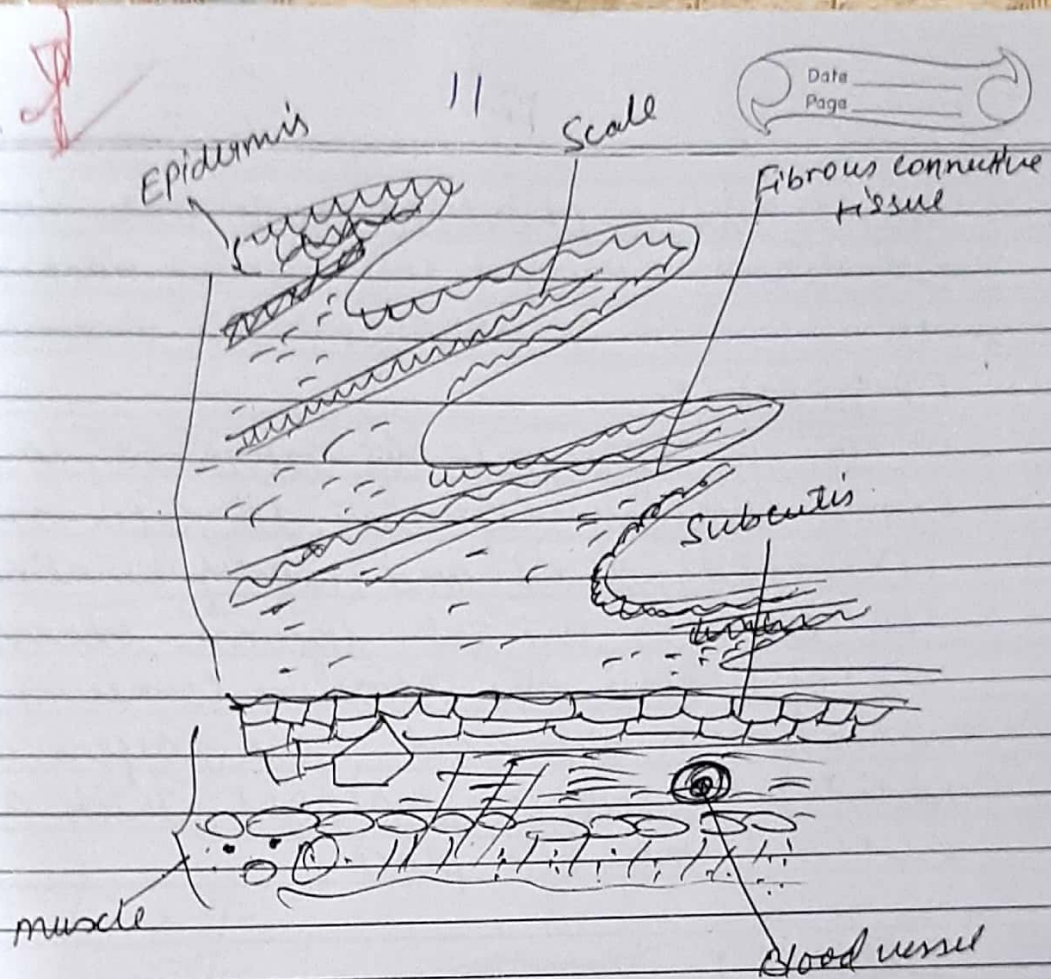 11
Date
Page
Epidermis
Scale
Fibrous connective
tissue
Subcutis
muscle
Blood vessel